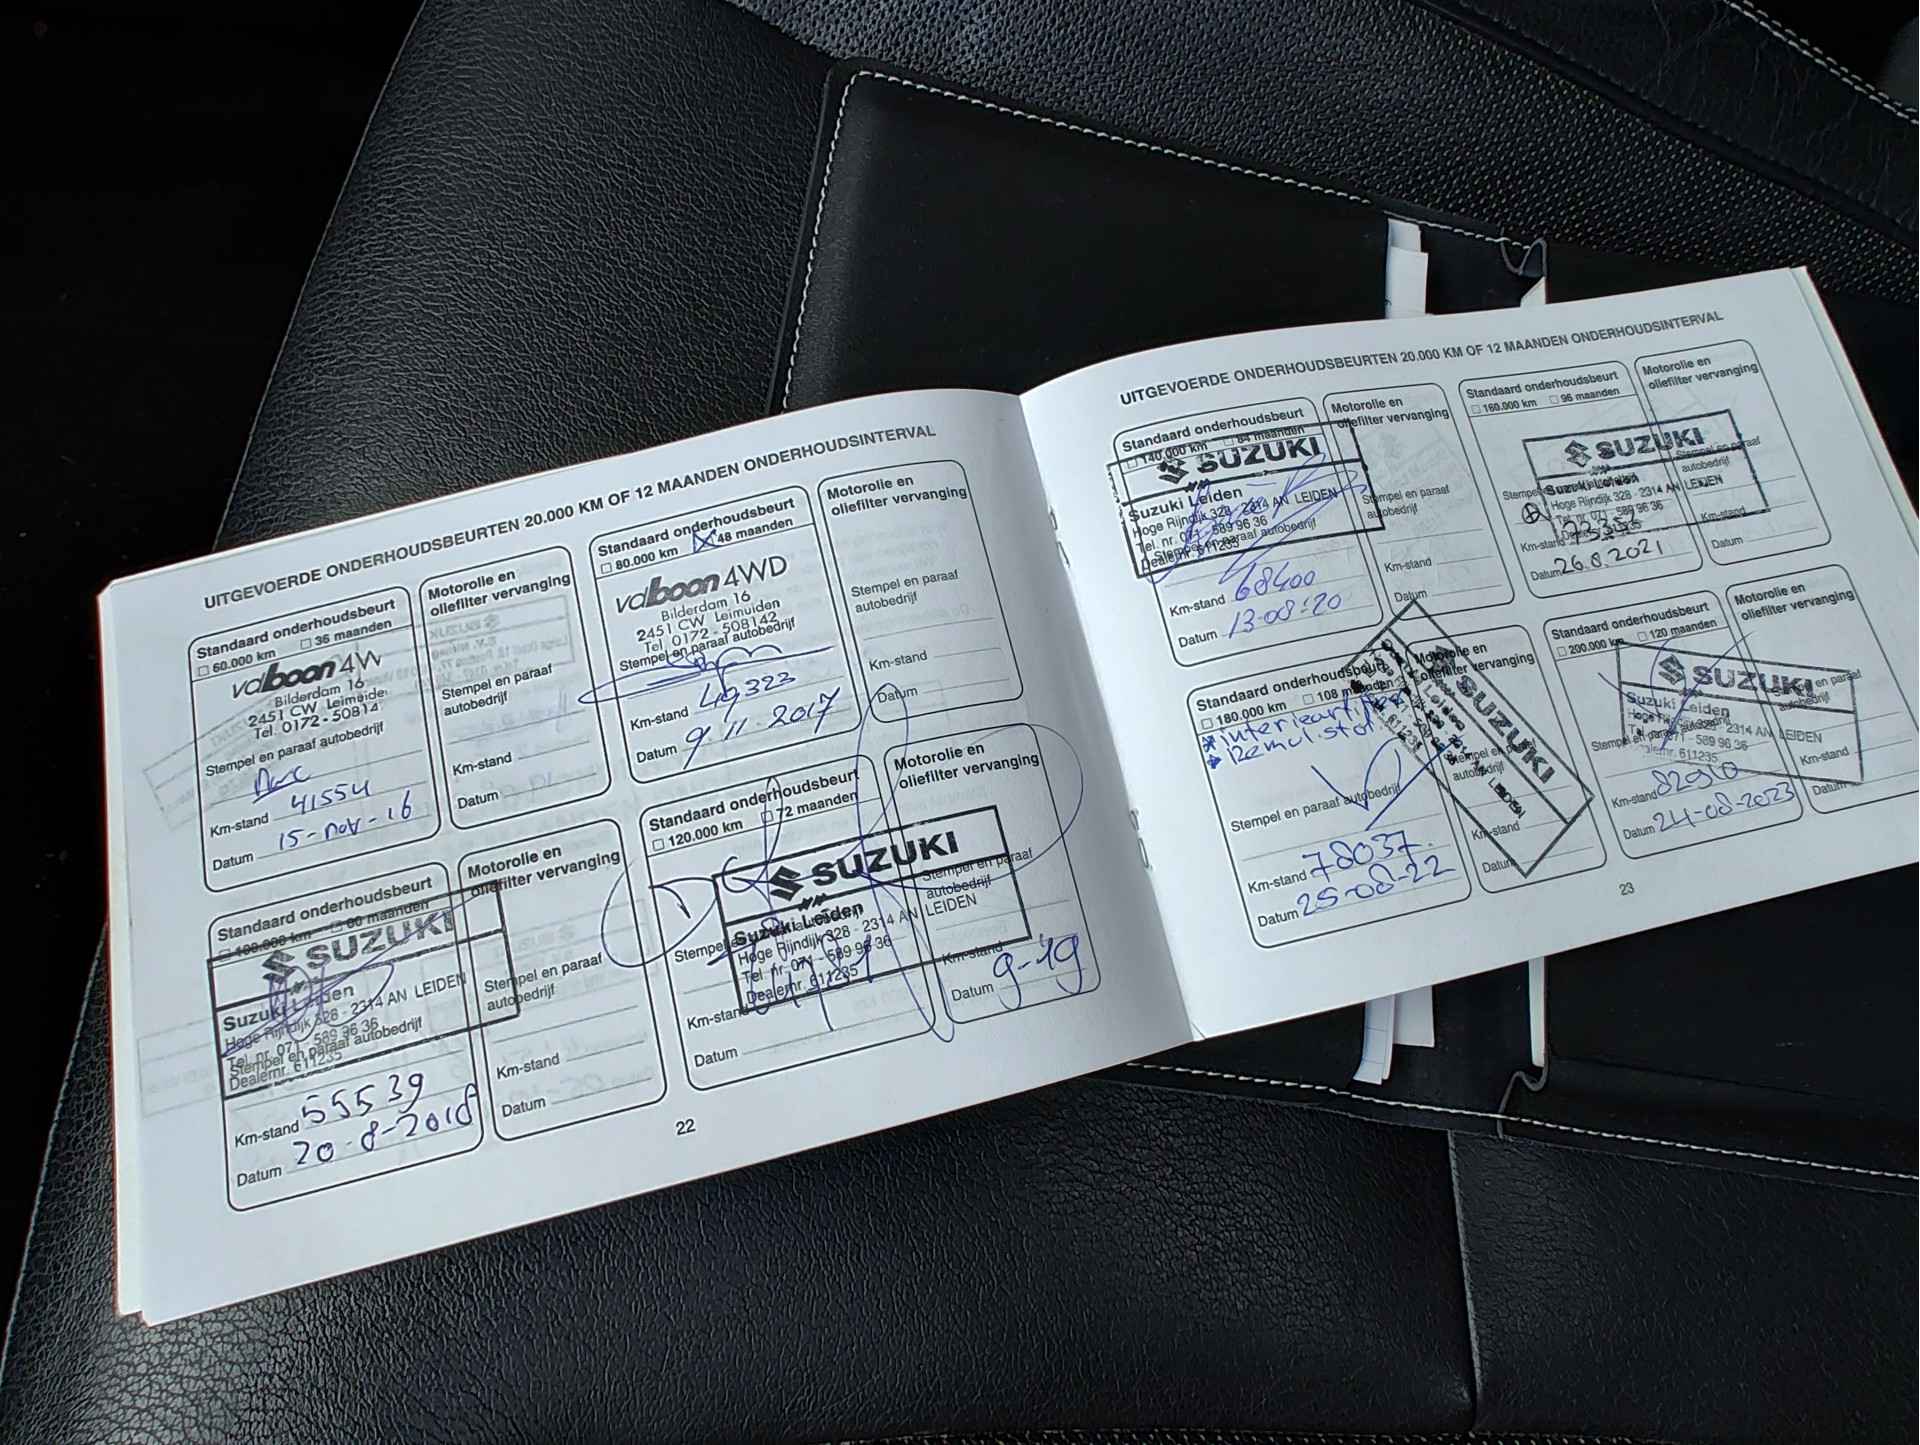 UITGEVOERDE ONDERHOUDSBEURTEN 20.000 KM OF 12 MAANDEN ONDERHOUDSINTERVAL
Standaard onderhoudsbeurt
☐ 60.000 km ☐ 36 maanden
vdboon 4W
Bilderdam 16
2451 CW Leimuide
Tel. 0172 - 50814
Stempel en paraaf autobedrijf
Km-stand 41554
Datum 15-nov-16
Motorolie en
oliefilter vervanging
Stempel en paraaf
autobedrijf
Km-stand
Datum
Standaard onderhoudsbeurt
☐ 80.000 km ☒ 48 maanden
vdboon 4WD
Bilderdam 16
2451 CW Leimuiden
Tel. 0172 - 508142
Stempel en paraaf autobedrijf
Km-stand 49323
Datum 9.11.2017
Motorolie en
oliefilter vervanging
Stempel en paraaf
autobedrijf
Km-stand
Datum
Standaard onderhoudsbeurt
☐ 100.000 km ☐ 60 maanden
SUZUKI
Suzuki Leiden
Hoge Rijndijk 328 - 2314 AN LEIDEN
Tel. nr. 071 - 589 96 36
Stempel en paraaf autobedrijf
Dealernr. 611235
Km-stand 55539
Datum 20-8-2018
Motorolie en
oliefilter vervanging
Stempel en paraaf
autobedrijf
Km-stand
Datum
Standaard onderhoudsbeurt
☐ 120.000 km ☐ 72 maanden
SUZUKI
Suzuki Leiden
Hoge Rijndijk 328 - 2314 AN LEIDEN
Tel. nr. 071 - 589 96 36
Dealernr. 611235
Km-stand
Datum
Motorolie en
oliefilter vervanging
Stempel en paraaf
autobedrijf
Km-stand
Datum 9-19
22
UITGEVOERDE ONDERHOUDSBEURTEN 20.000 KM OF 12 MAANDEN ONDERHOUDSINTERVAL
Standaard onderhoudsbeurt
☐ 140.000 km ☐ 84 maanden
SUZUKI
Suzuki Leiden
Hoge Rijndijk 328 - 2314 AN LEIDEN
Tel. nr. 071 - 589 96 36
Stempel en paraaf autobedrijf
Dealernr. 611235
Km-stand 68400
Datum 13-08-'20
Motorolie en
oliefilter vervanging
Stempel en paraaf
autobedrijf
Km-stand
Datum
Standaard onderhoudsbeurt
☐ 160.000 km ☐ 96 maanden
SUZUKI
Suzuki Leiden
Hoge Rijndijk 328 - 2314 AN LEIDEN
Tel. nr. 071 - 589 96 36
Km-stand
Datum 26.8.2021
Motorolie en
oliefilter vervanging
Stempel en paraaf
autobedrijf
Km-stand
Datum
Standaard onderhoudsbeurt
☐ 180.000 km ☐ 108 maanden
Stempel en paraaf autobedrijf
Km-stand 78037
Datum 25-08-22
Motorolie en
oliefilter vervanging
SUZUKI
Stempel en paraaf
autobedrijf
Km-stand
Datum
Standaard onderhoudsbeurt
☐ 200.000 km ☐ 120 maanden
SUZUKI
Suzuki Leiden
Hoge Rijndijk 328 - 2314 AN LEIDEN
Tel. nr. 071 - 589 96 36
Dealernr. 611235
Km-stand 82910
Datum 24-08-2023
Motorolie en
oliefilter vervanging
Stempel en paraaf
autobedrijf
Km-stand
Datum
23